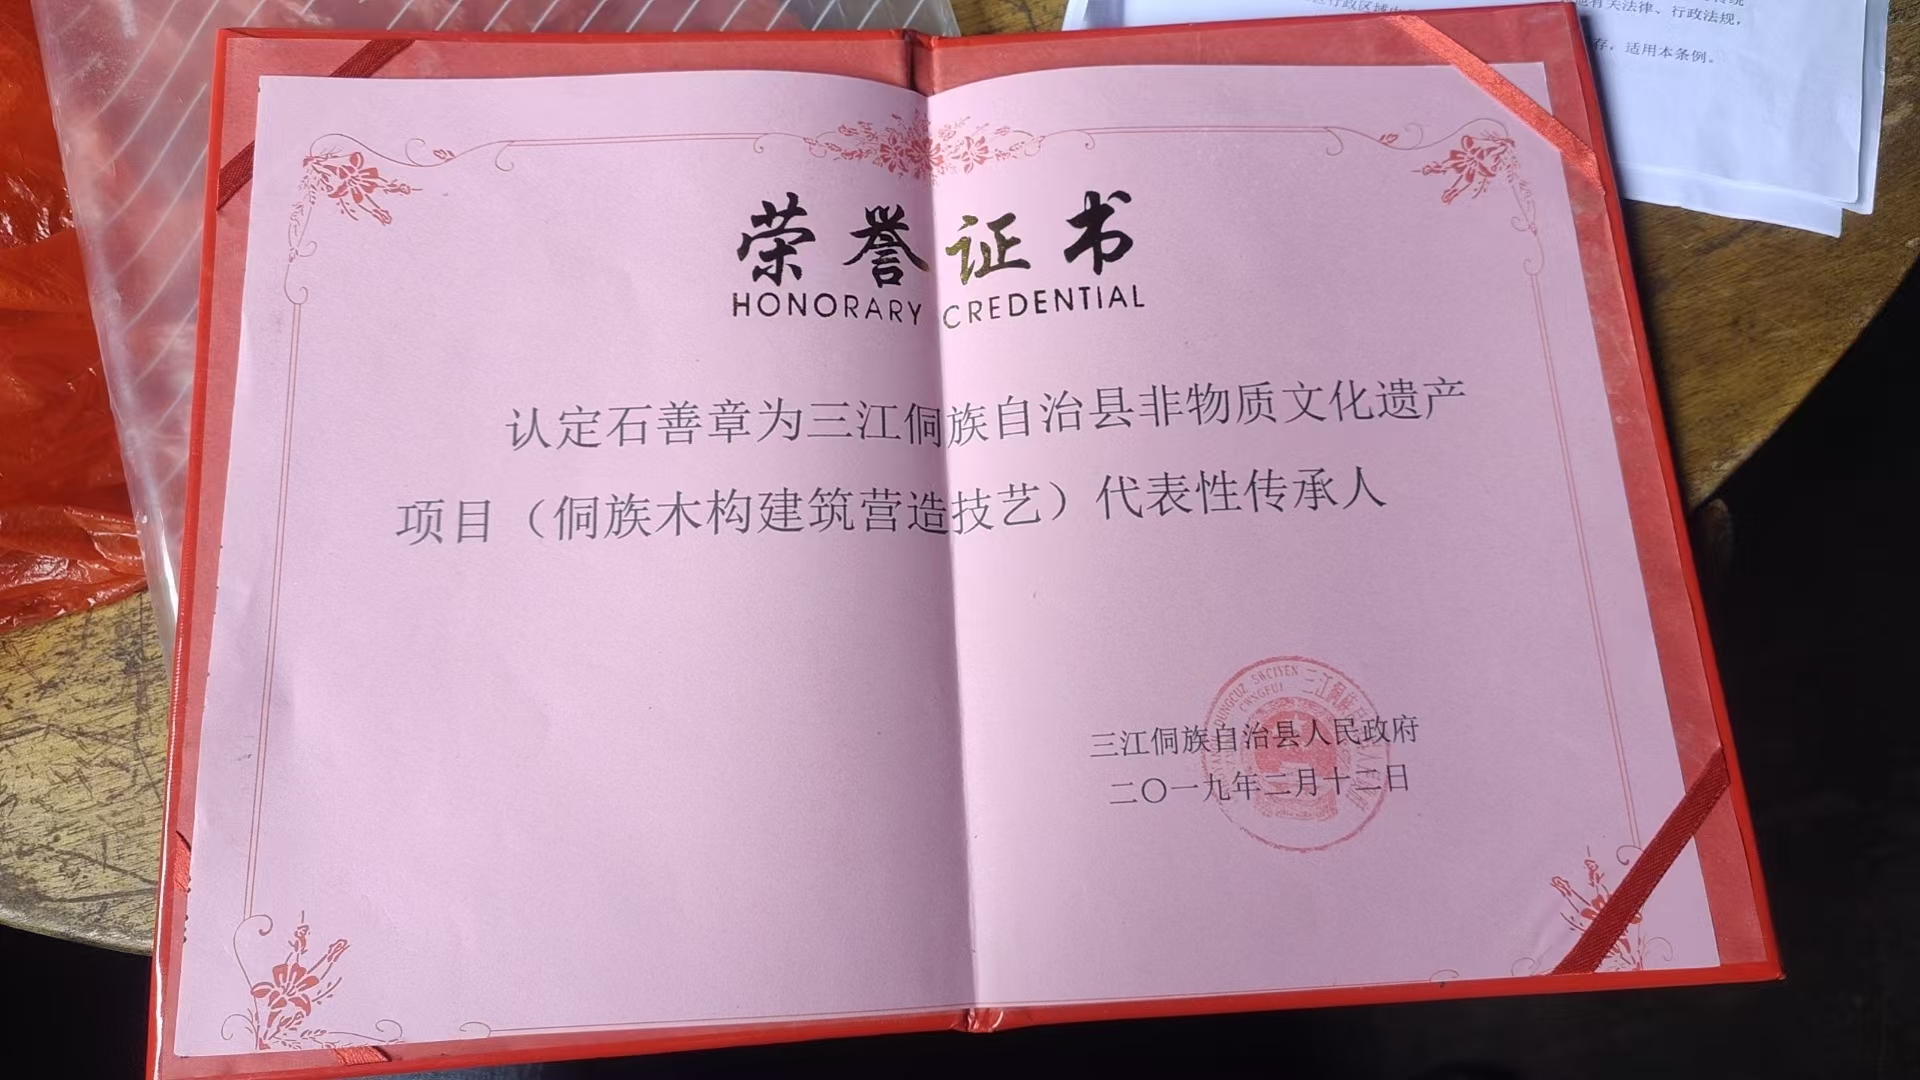 行政区域
有关法律、行政法规，
存，适用本条例。
荣誉证书
HONORARY CREDENTIAL
认定石善章为三江侗族自治县非物质文化遗产
项目（侗族木构建筑营造技艺）代表性传承人
三江侗族自治县人民政府
二〇一九年二月十二日